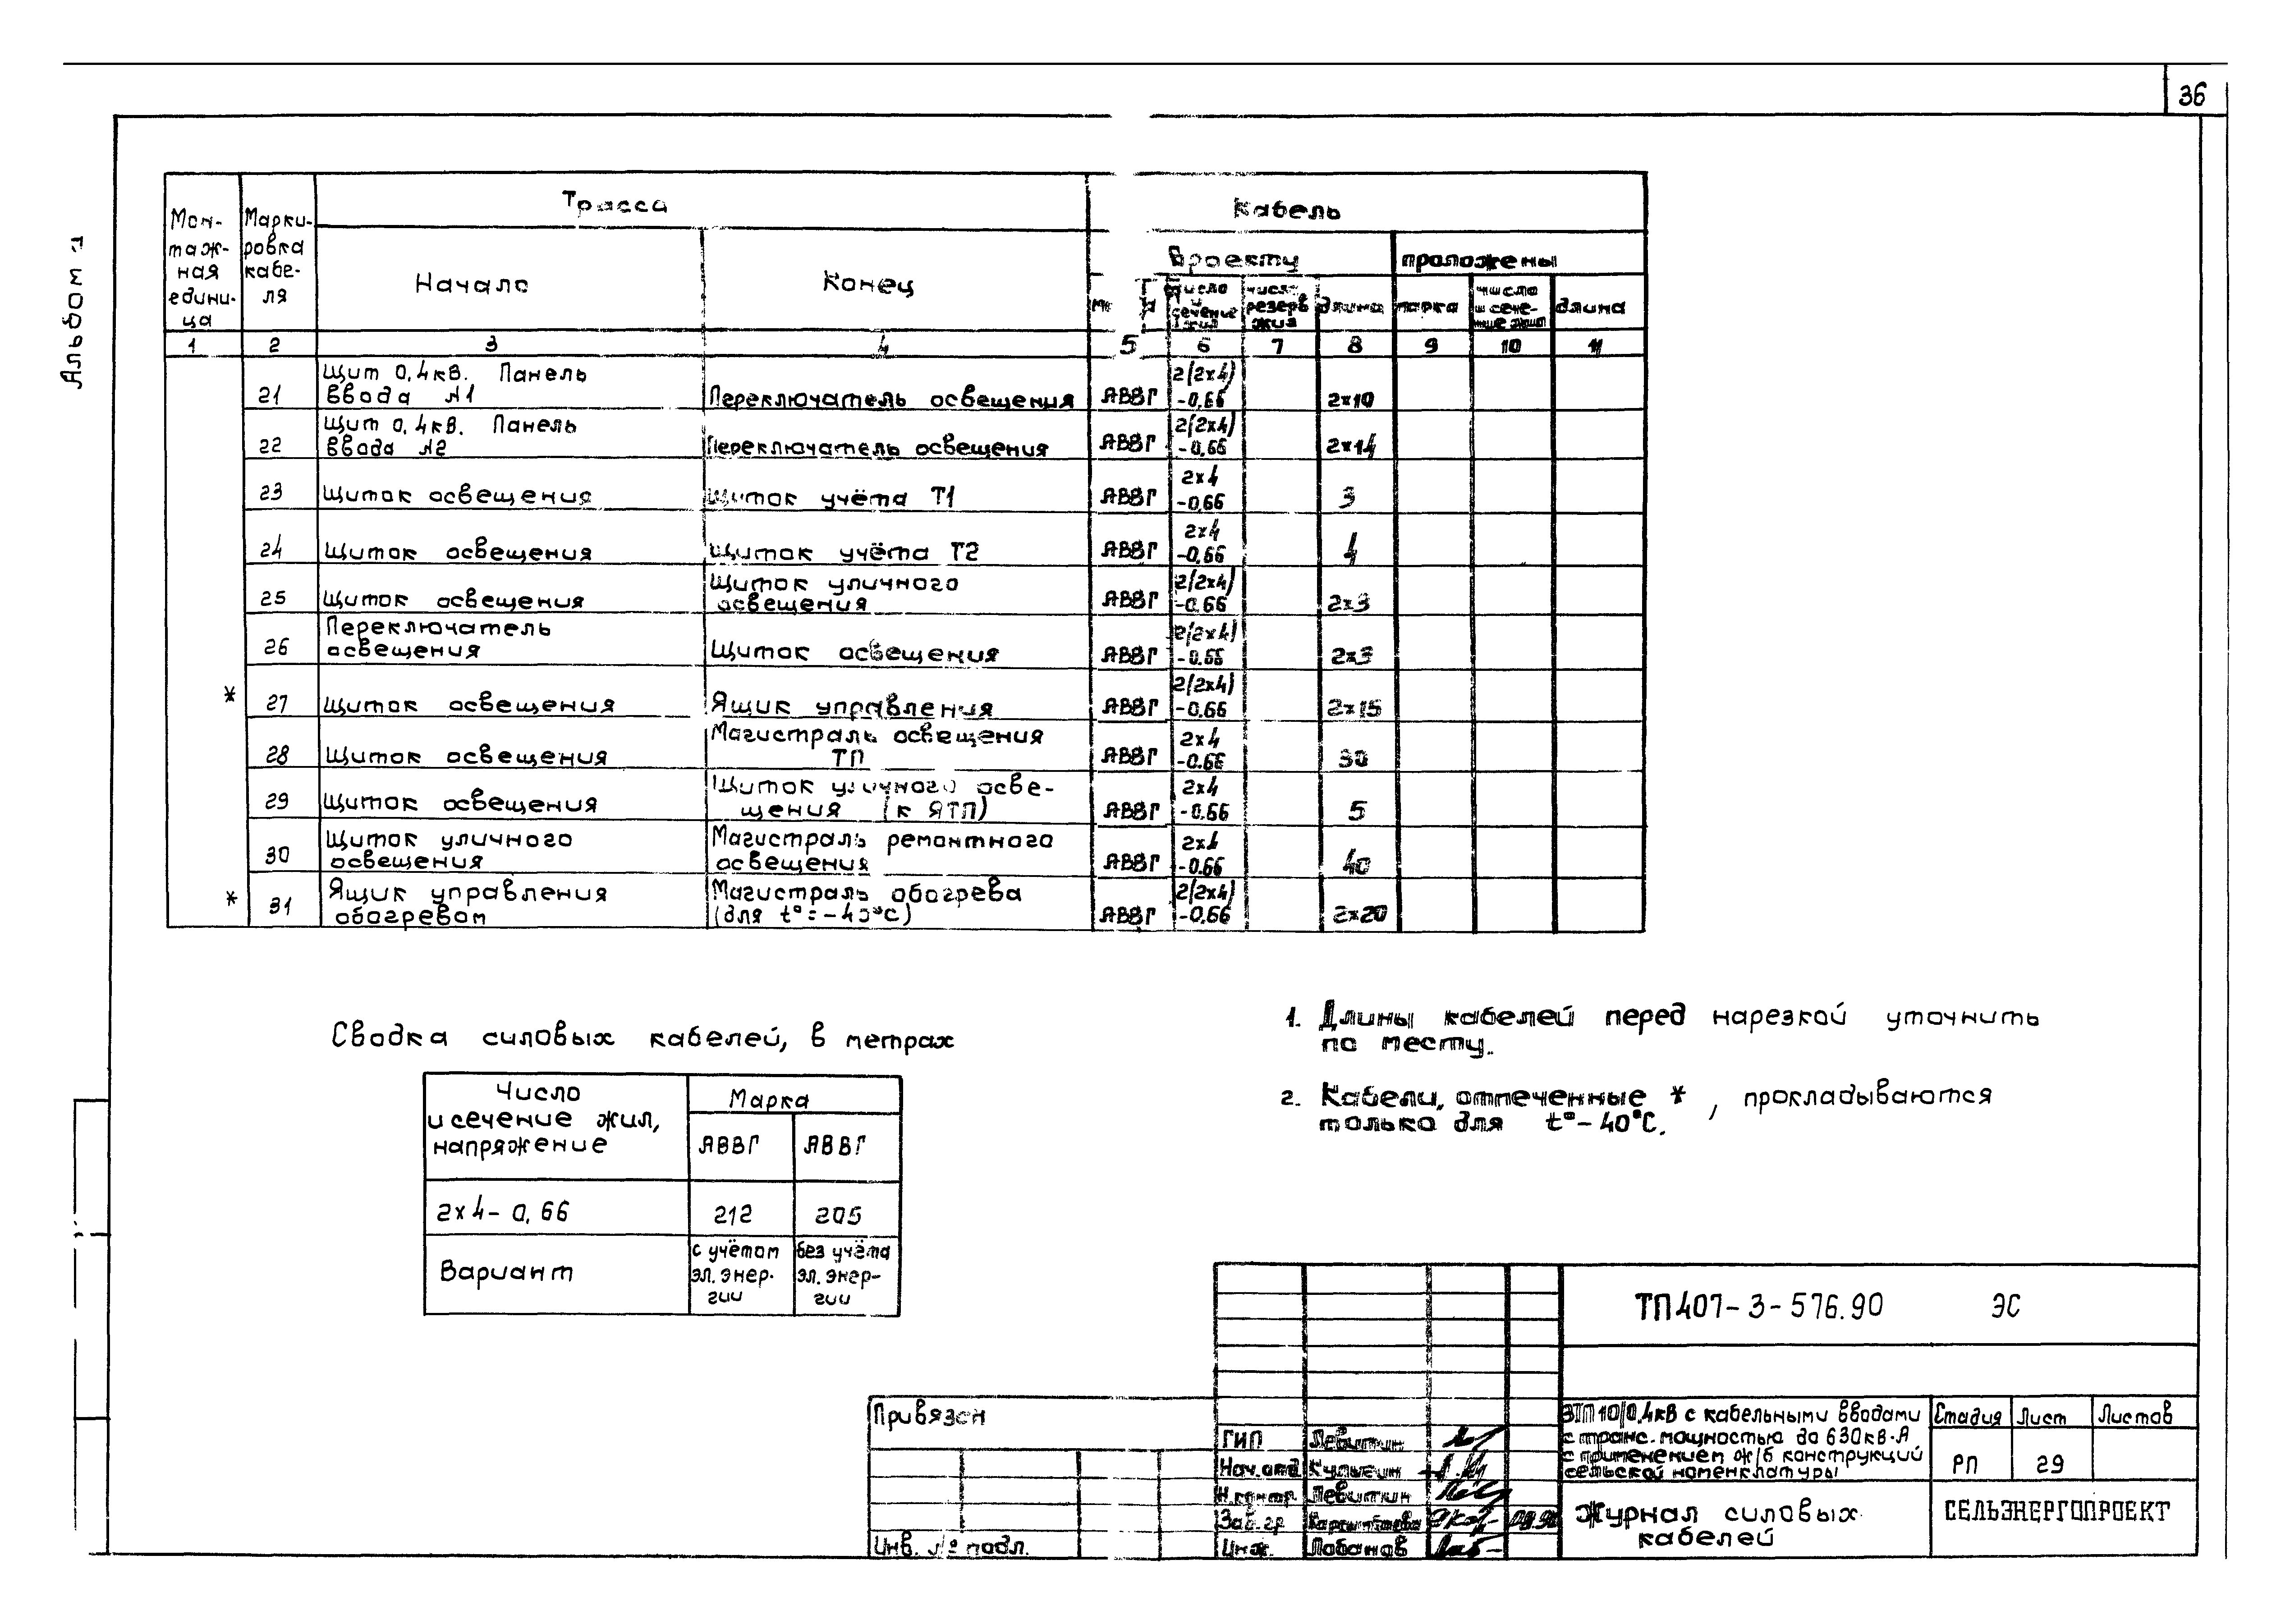 36
Альбом 1
Мон-
таж-
ная
едини-
ца
Марки-
ровка
кабе-
ля
Трасса
Кабель
Начало
Конец
проекту
проложены
число
и
сечение
жил
число
резерв
жил
длина
марка
число
и сече-
ние жил
длина
1 2 3 4 5 6 7 8 9 10 11
21 Щит 0,4кв. Панель ввода №1 Переключатель освещения АВВГ 2(2х4) -0,66 2х10
22 Щит 0,4кв. Панель ввода №2 Переключатель освещения АВВГ 2(2х4) -0,66 2х14
23 Щиток освещения Щиток учёта Т1 АВВГ 2х4 -0,66 3
24 Щиток освещения Щиток учёта Т2 АВВГ 2х4 -0,66 4
25 Щиток освещения Щиток уличного освещения АВВГ 2(2х4) -0.66 2х3
26 Переключатель освещения Щиток освещения АВВГ 2(2х4) -0.66 2х3
* 27 Щиток освещения Ящик управления АВВГ 2(2х4) -0.66 2х15
28 Щиток освещения Магистраль освещения ТП АВВГ 2х4 -0.66 30
29 Щиток освещения Щиток уличного осве- щения (к ЯТП) АВВГ 2х4 -0.66 5
30 Щиток уличного освещения Магистраль ремонтного освещения АВВГ 2х4 -0.66 40
* 31 Ящик управления обогревом Магистраль обогрева (для t°=-40°с) АВВГ 2(2х4) -0.66 2х20
Сводка силовых кабелей, в метрах
Число
и сечение жил,
напряжение
Марка
АВВГ АВВГ
2х4- 0,66 212 205
Вариант
с учётом
эл. энер-
гии
без учёта
эл. энер-
гии
1. Длины кабелей перед нарезкой уточнить
по месту.
2. Кабели, отмеченные *, прокладываются
только для t°- 40°С.
ТП407-3-576.90 ЭС
Привязан
Инв. № подл.
ГИП Левитин
Нач.отд Кулыгин
Н.контр. Левитин
Зав.гр.
Инж. Лобанов
ЗТП 10/0,4кВ с кабельными вводами
с транс. мощностью до 630кв·А
с применением ж/б конструкций
сельской номенклатуры
Стадия Лист Листов
РП 29
Журнал силовых
кабелей
СЕЛЬЭНЕРГОПРОЕКТ